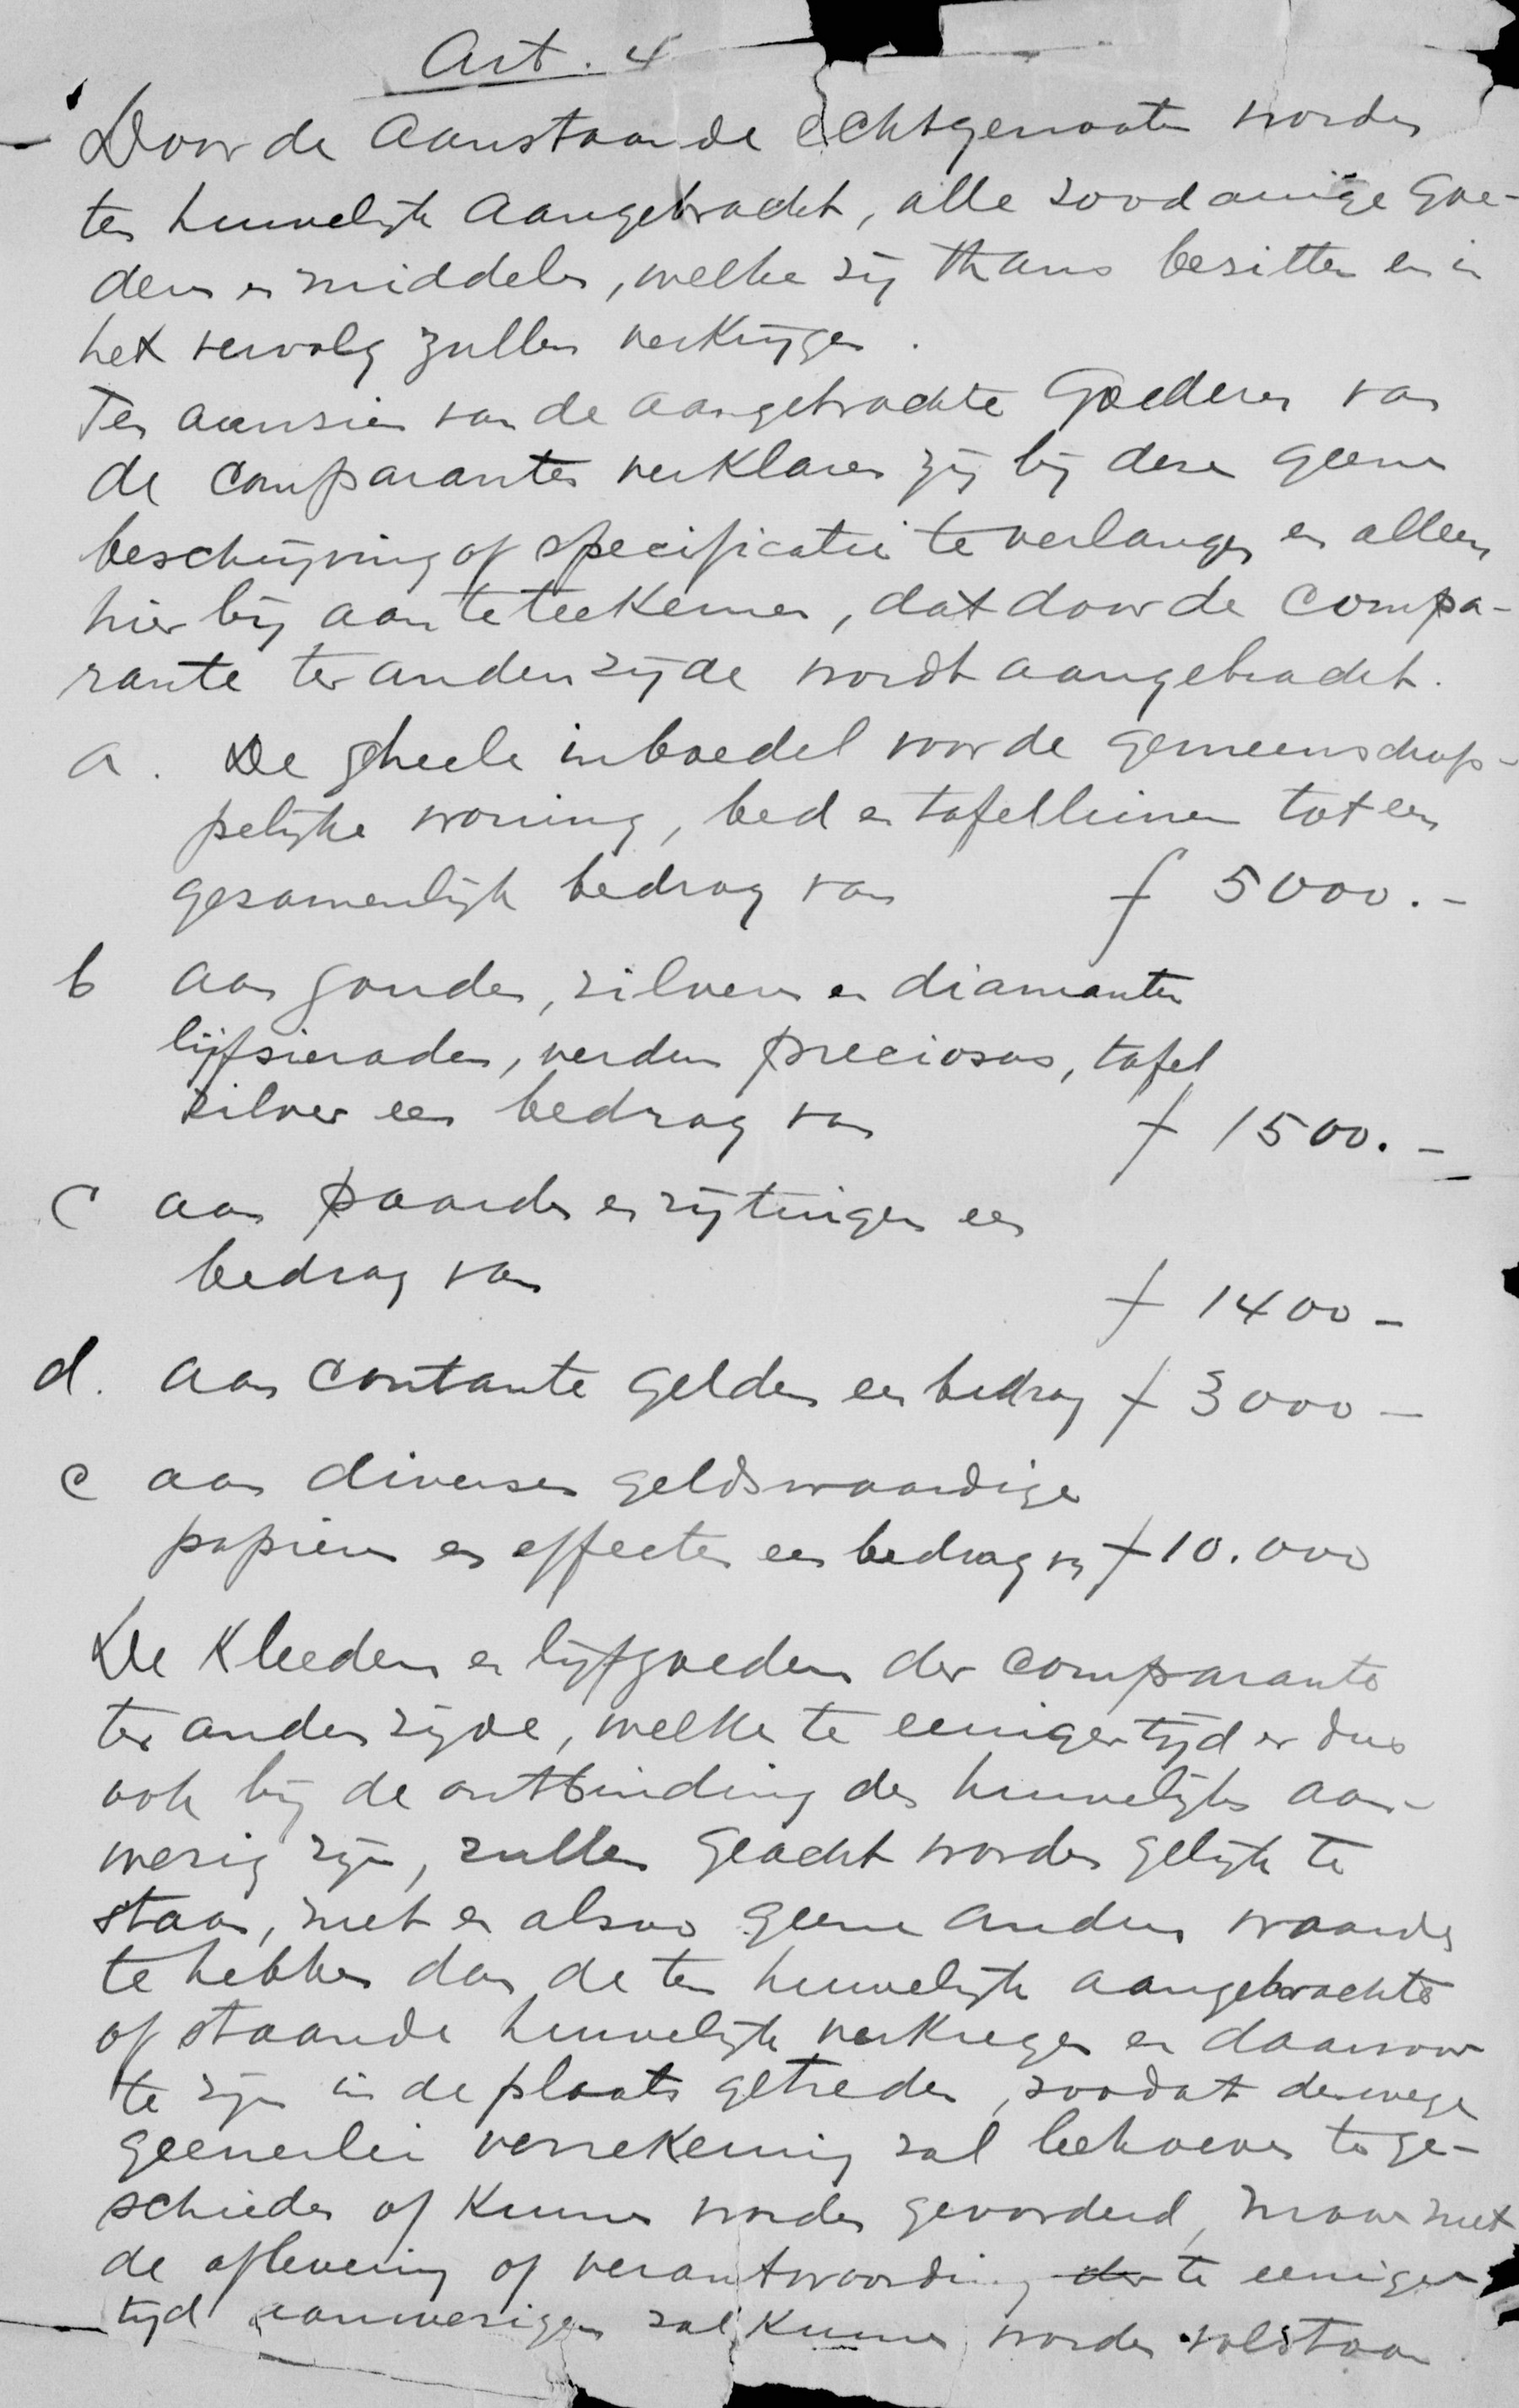 Art. 4
Door de aanstaande echtgenooten worden
ten huwelijk aangebracht, alle zoodanige goe-
deren en middelen, welke zij thans bezitten en in
het vervolg zullen verkrijgen.
Ten aanzien van de aangebrachte goederen van
de comparanten verklaren zij bij deze geene
beschrijving of specificatie te verlangen en alleen
hierbij aan te teekenen, dat door de compa-
rante ter anderer zijde wordt aangebracht.
a. De geheele inboedel voor de gemeenschap-
pelijke woning, bed en tafellinnen tot een
gezamenlijk bedrag van f 5000.-
b aan gouden, zilveren en diamanten
lijfsieraden, verdere preciosas, tafel
zilver een bedrag van f 1500.-
c aan paarden en rijtuigen een
bedrag van f 1400-
d. aan contante gelden een bedrag f 3000-
e aan diverse geldswaardige
papieren en effecten een bedrag v f 10.000
De kleederen en lijfgoederen der comparante
ter andere zijde, welke te eeniger tijd en dus
ook bij de ontbinding des huwelijks aan-
wezig zijn, zullen geacht worden gelijk te
staan, met en alzoo geene andere waarde
te hebben dan de ten huwelijk aangebrachte
of staande huwelijk verkregen en daarvoor
te zijn in de plaats getreden, zoodat deswege
geenerlei verrekening zal behoeven te ge-
schieden of kunnen worden gevorderd, maar met
de aflevering of verantwoording der te eeniger
tijd aanwezigen zal kunnen worden volstaan.